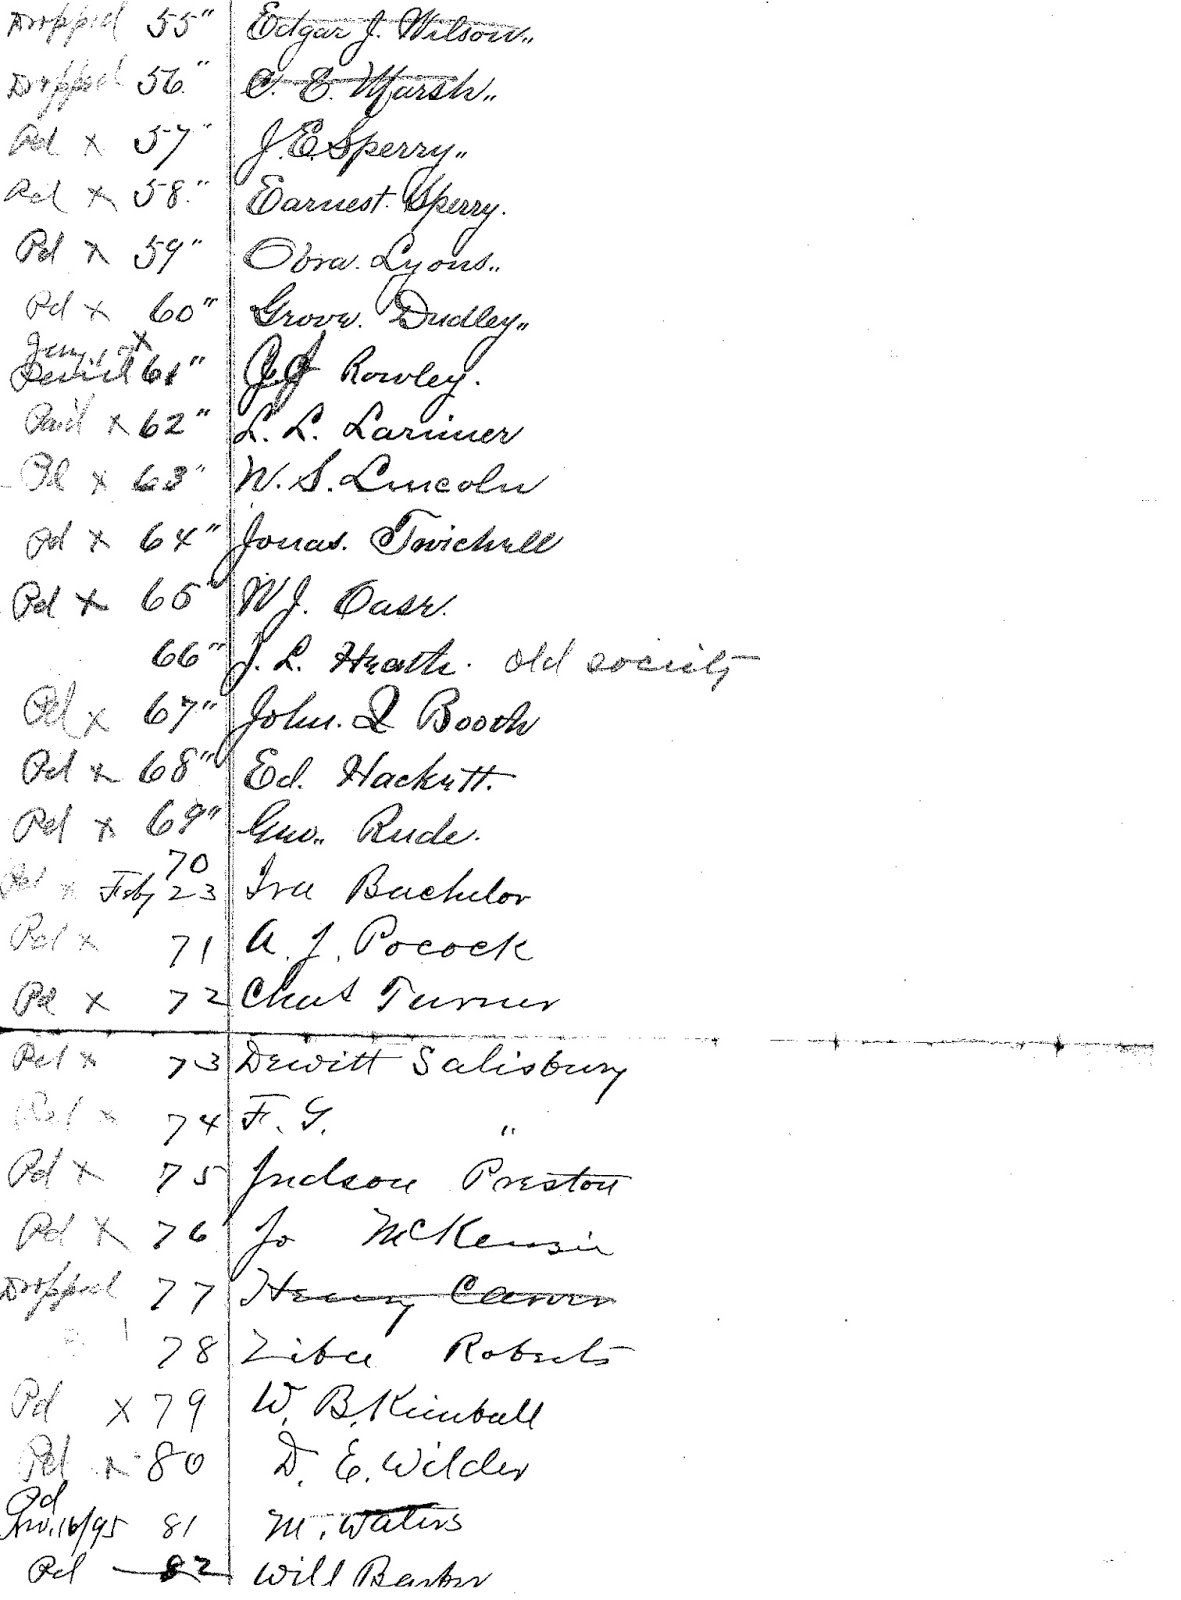 Dropped 55" Edgar J. Wilson"
Dropped 56" C. E. Marsh"
Pd x 57" J. E. Sperry"
Pd x 58" Earnest Sperry.
Pd x 59" Obra. Lyons"
Pd x 60" Grove. Dudley"
x
61" Rowley.
Paid x 62" L. L. Larimer
Pd x 63" W. S. Lincoln
pd x 64" Jonas. Twichell
Pd x 65" W J. Case.
66" J. L. Heath. old society
Pd x 67" John. Q Booth
Pd x 68" Ed. Hackett.
Pd x 69" Geo" Rude.
70
Pd x Feby 23 Ira Bachelor
Pd x 71 A. J. Pocock
Pd x 72 Chas Turner
Pd x 73 Dewitt Salisbury
Pd x 74 F. G. "
Pd x 75 Judson Preston
Pd x 76 Jo McKensie
Dropped 77 Henry Carver
78 Ziba Roberts
Pd x 79 W. B. Kimball
Pd x 80 D. E. Wilder
Pd
Nov. 16/95 81 M. Waters
Pd 82 Will Barber